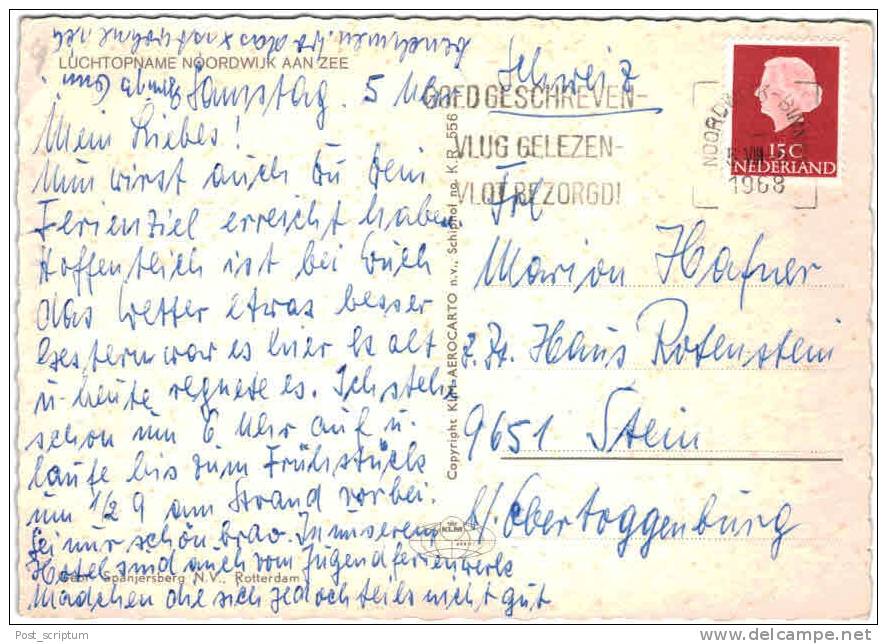 LUCHTOPNAME NOORDWIJK AAN ZEE
Samstag. 5 Uhr
Mein Liebes!
Nun wirst auch Du Dein
Ferienziel erreicht haben.
Hoffentlich ist bei Euch
das Wetter etwas besser
Gestern war es hier kalt
u. heute regnete es. Ich stehe
schon um 6 Uhr auf u.
laufe bis zum Frühstück
um 1/2 9 am Strand vorbei.
Sei nur schön brav. In unserem
Hotel sind auch vom Jugendferienwerk
Mädchen die sich jedoch teils nicht gut
benehmen.
Gebr. Spanjersberg N.V., Rotterdam
Copyright KLM-AEROCARTO n.v., Schiphol no. K.R. 556
KLM
GOED GESCHREVEN-
VLUG GELEZEN-
VLOT BEZORGD!
NOORDWIJK-BINNEN
1968
15 C
NEDERLAND
Schweiz
Frl
Marion Hafner
z. Zt. Haus Rotenstein
9651 Stein
Obertoggenburg
Post_scriptum
delcampe.net